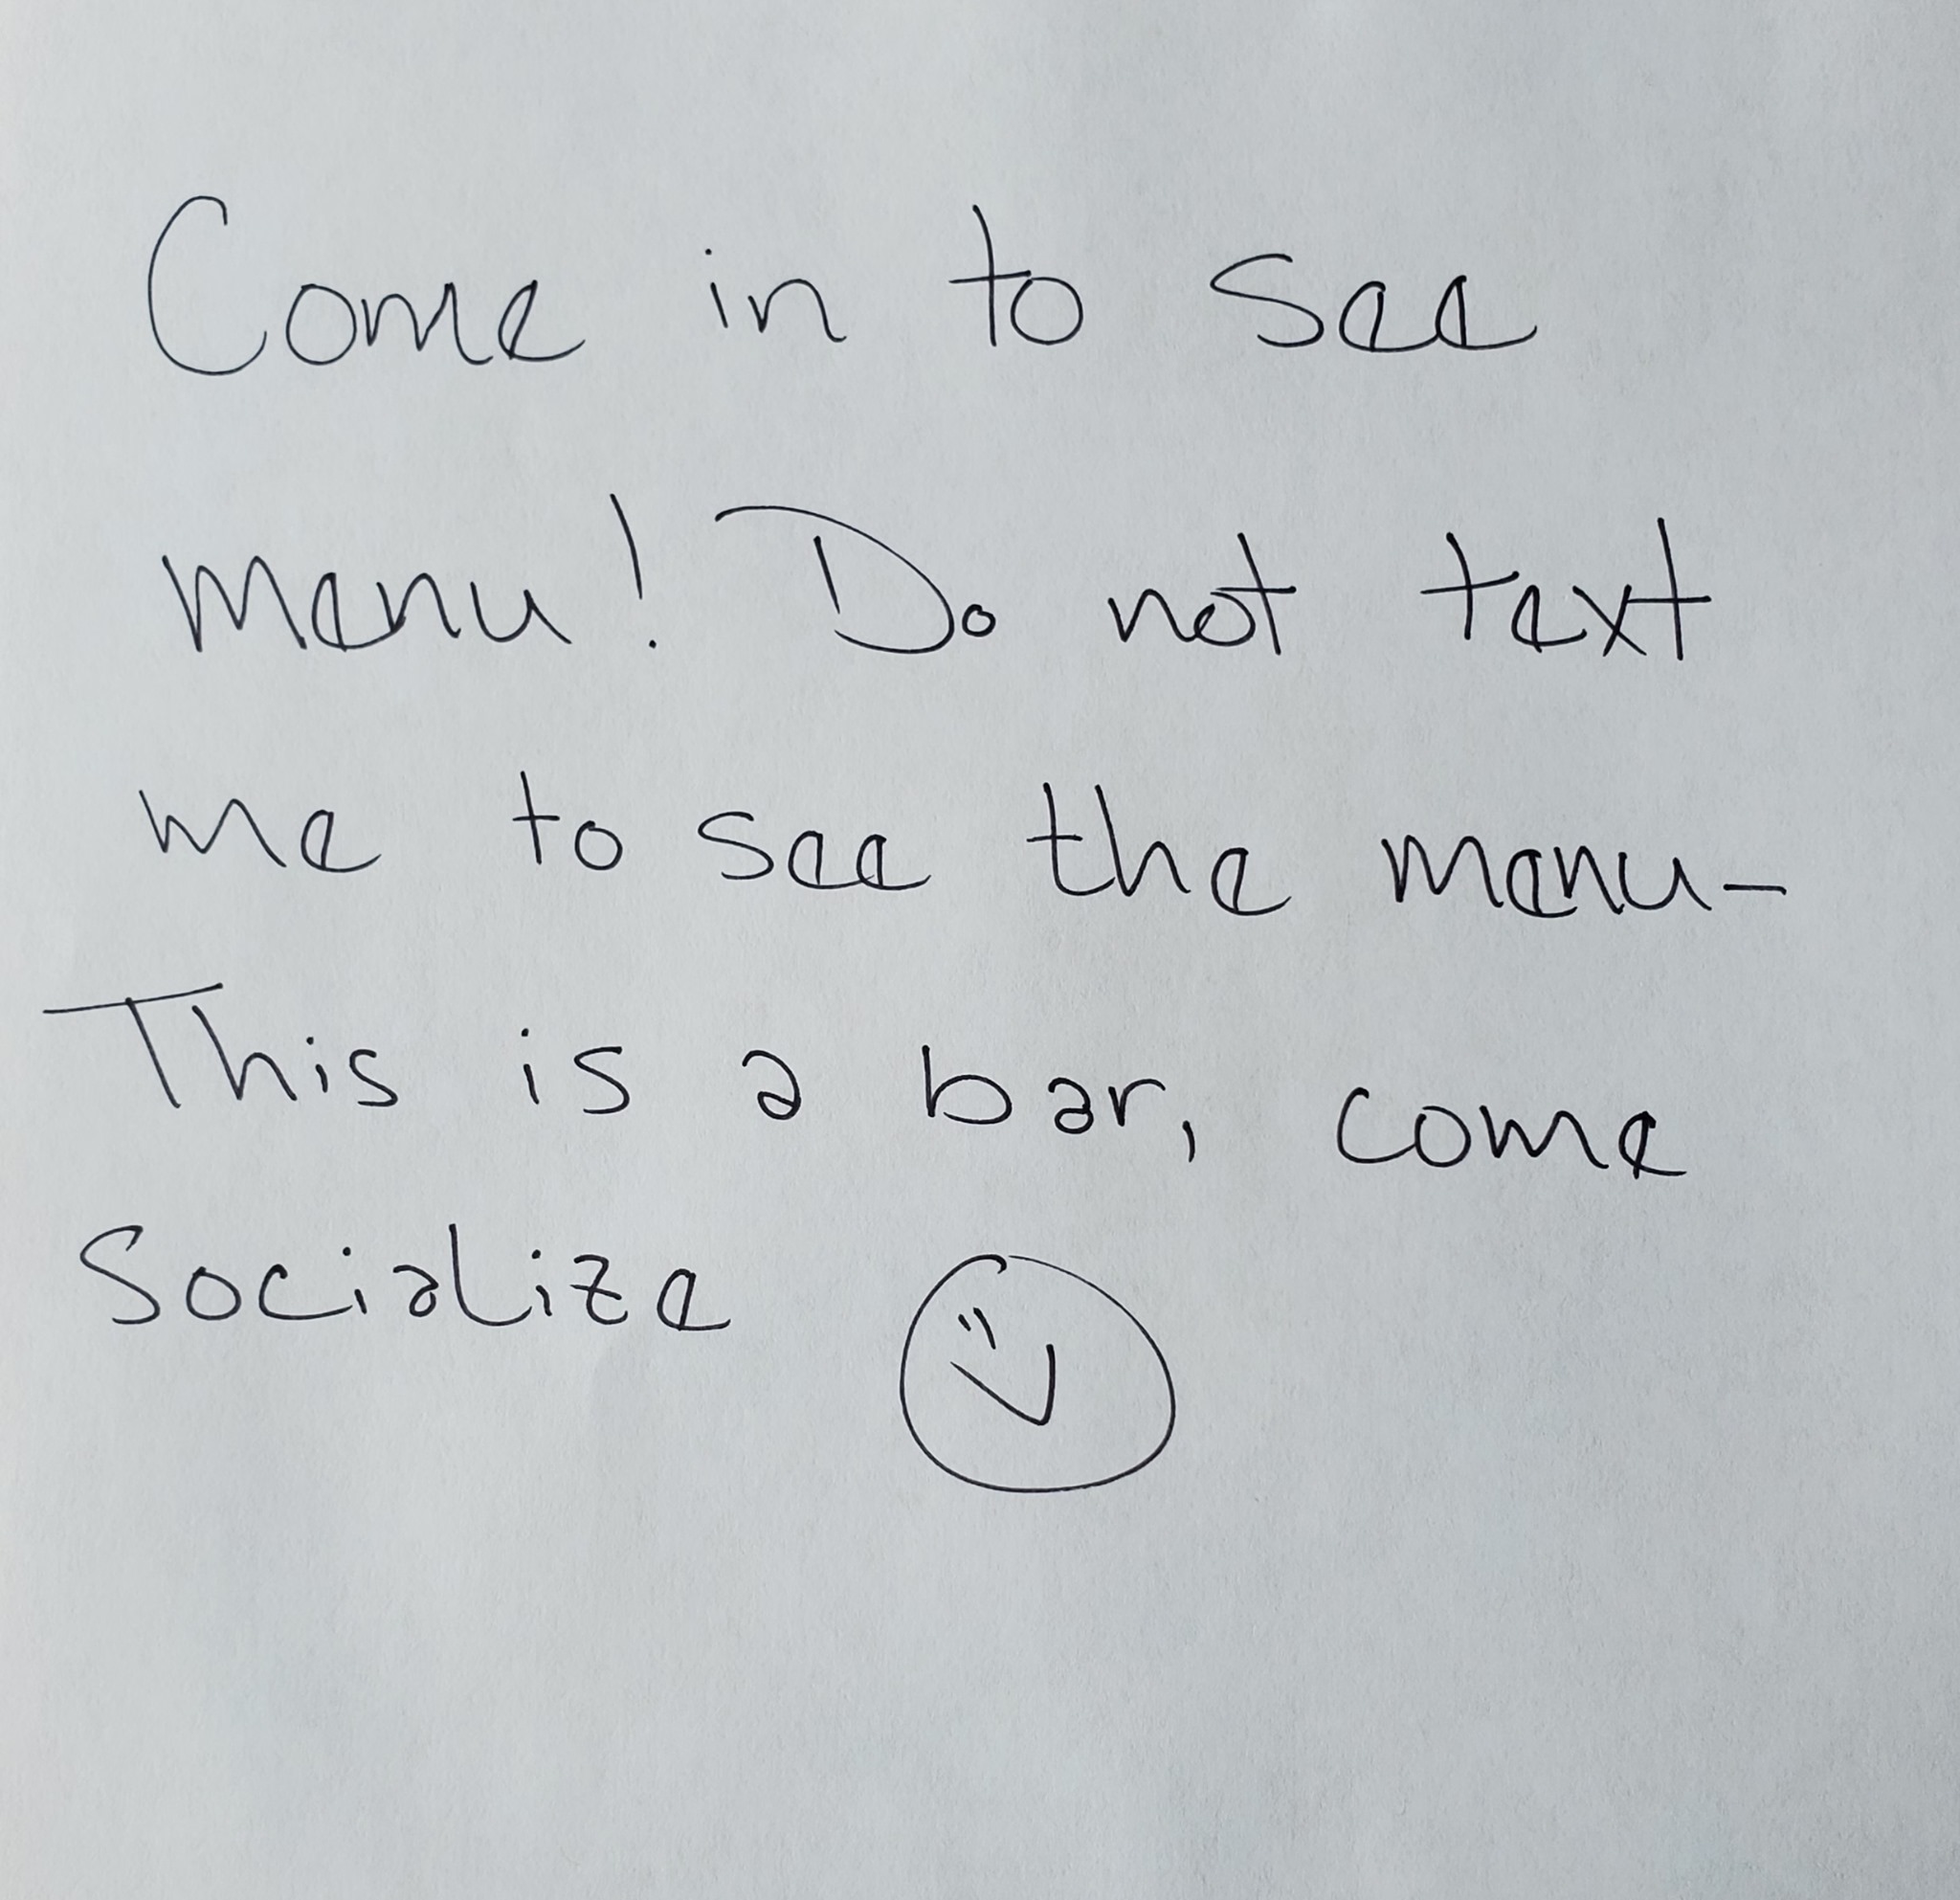 Come in to see
menu! Do not text
me to see the menu-
This is a bar, come
Socialize